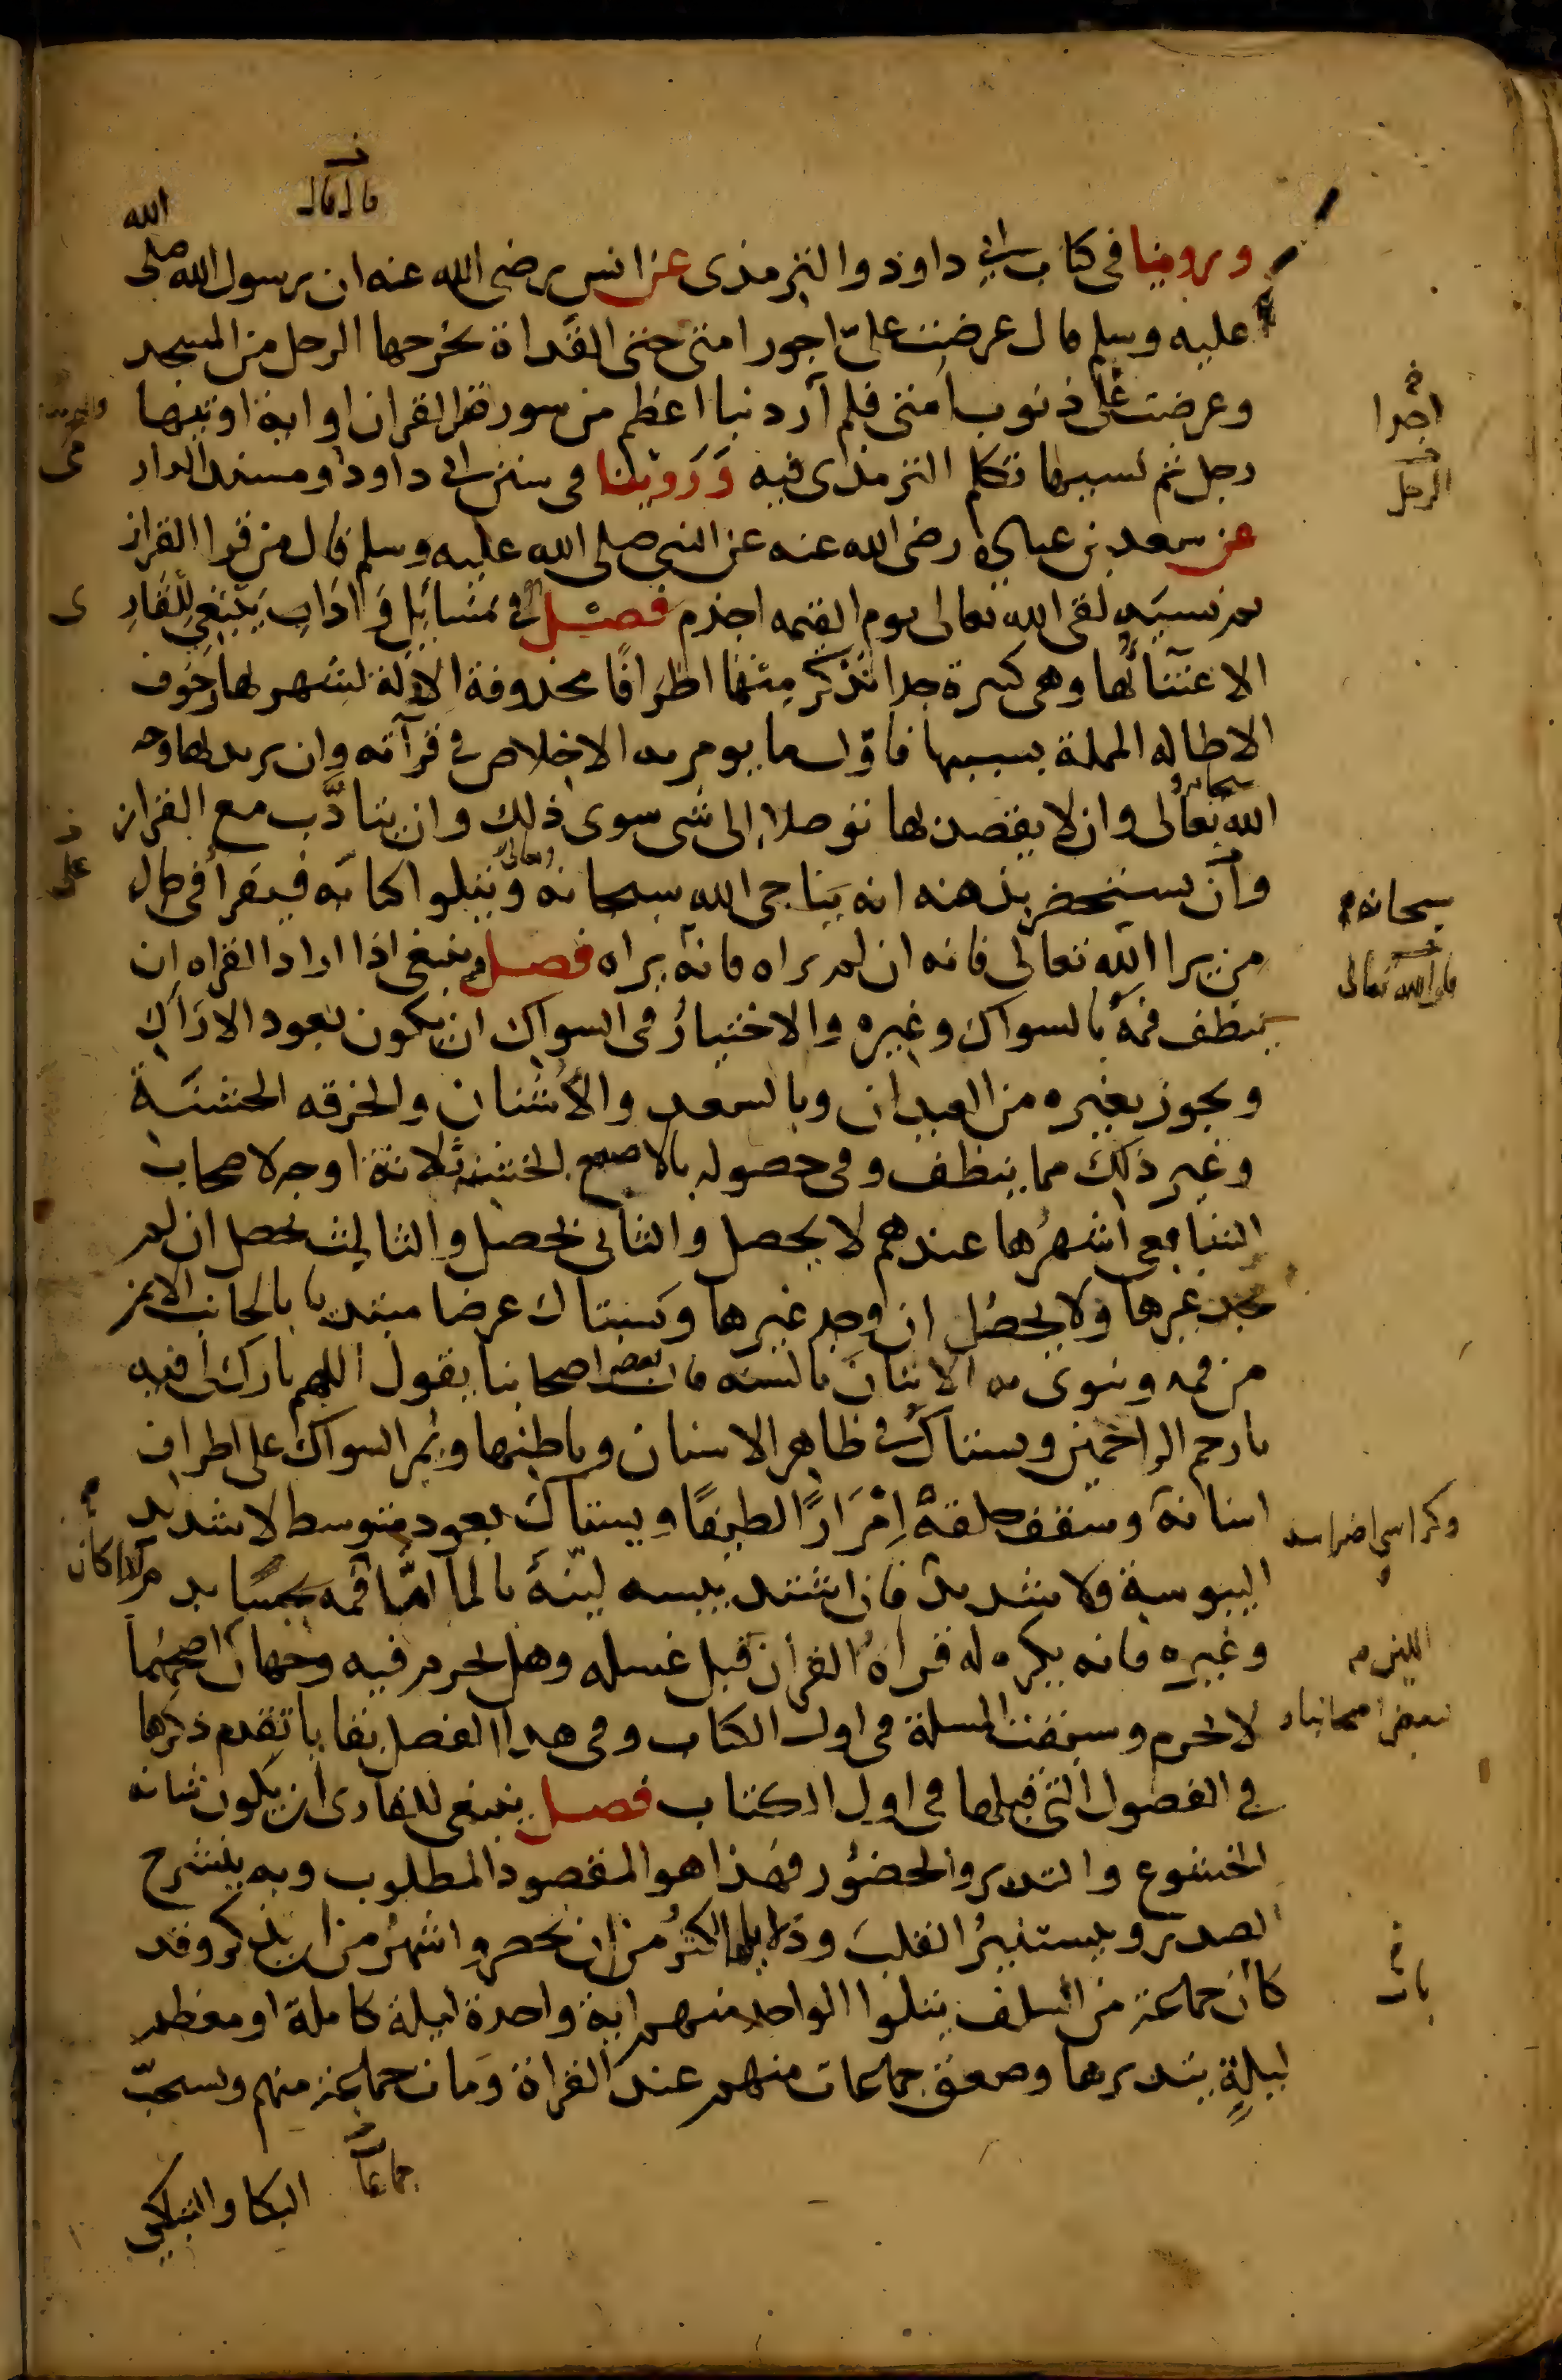 قال قال
وروينا في كتاب ابي داود والترمذى عن انس رضى الله عنه ان رسول الله صلى الله
عليه وسلم قال عرضت علىّ اجور امتى حتى القذاة يخرجها الرجل من المسجد
وعرضت على ذنوب امتى فلم ار ذنبا اعظم من سورة من القران او اية اوتيها
رجل ثم نسيها تكلم الترمذى فيه وَرَوينا فى سنن ابى داود ومسند الدار
عن سعد بن عبادة رضى الله عنه عن النبى صلى الله عليه وسلم قال من قرا القران
ثم نسيه لقى الله تعالى يوم القيمه اجذم فصل فى مسايل و اداب ينبغى للقارِ
الاعتنآ بها وهى كثيرة جدا نذكر منها اطرافًا محذوفة الادلة لشهرتها وخوف
الاطاله المملة بسببها فاوّل ما يومر به الاخلاص في قرآته وان يريد بها وجه
الله سبحانه وتعالى وان لا يقصد بها توصلا الى شى سوى ذلك وان يتادَّب مع القران
وان يستحضر بذهنه انه يناجى الله سبحانه وتعالى ويتلوا كتابه فيقرأ فى حال
من يرا الله تعالى فانه ان لم يراه فانه يراه فصل وينبغى اذا اراد القراه ان
ينظف فمه بالسواك وغيره والاختيارُ فى السواك ان يكون بعود الاراك
ويجوز بغيره من العيدان وبالسعد والاشنان والخرقه الخشنة
وغير ذلك مما ينظف وفى حصوله بالاصبع الخشنه ثلاثة اوجه لاصحاب
الشافعى اشهرُها عندهم لا يحصل والثانى يحصل والثالث يحصل ان لم
يجد غيرها ولا يحصل ان وجد غيرها ويستاك عرضا مبتديا بالجانب الايمن
من فمه وينوى به الاتيان بالسنه قال بعض اصحابنا يقول اللهم بارك لى فيه
يارحم الراحمين ويستاك فى ظاهر الاسنان وباطنها ويمر السواك على اطراف
اسنانه وسقف حلقه اِمْرَارًا لطيفًا ويستاك بعود متوسط لا شديد
اليبوسة ولا شديد فان اشتد يبسه لينهُ بالمآ امّا فمه نجسًا بدم
وغيره فانه يكره له قراه القرأن قبل غسله وهل يحرم فيه وجهان اصحهما
لا يحرم وسبقت المسلة فى اول الكتاب وفى هذا الفصل بقايا تقدم ذكرها
في الفصول التى قبلها فى اول الكتاب فصل ينبغى للقارى ان يكون شانه
الخشوع والتدبر والحضُور فهذا هو المقصود المطلوب وبه ينشرح
الصدر ويستنيرُ القلب ودلايلها اكثرُ من ان تحصر واشهر من ان يذكر وقد
كان جماعة من السلف يتلوا الواحد منهم اية واحدة ليلة كاملة او معظم
ليلةٍ يتدبرها وصعق جماعات منهم عند القراة ومات جماعة منهم ويستحبّ
جماعات
البكا والتباكى
الرجل
سبحانه
وكراسى اضراسه
اللين
بعض اصحابنا
بات